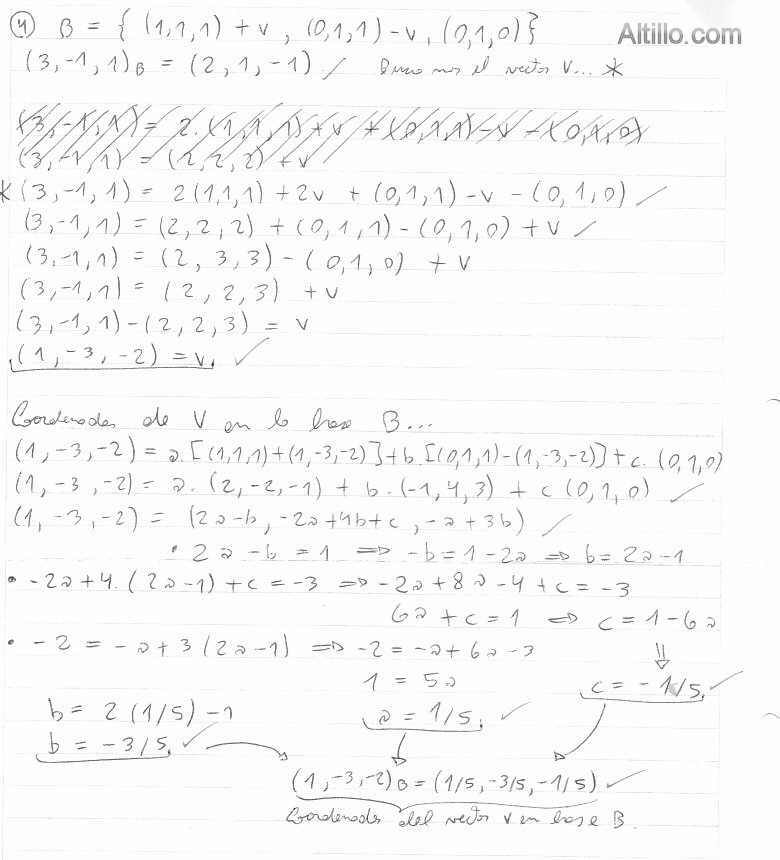 ④ B = { (1,1,1) + v , (0,1,1) - v , (0,1,0) }
Altillo.com
(3,-1,1)B = (2,1,-1) ✓ Buscamos el vector V... *
(3,-1,1) = 2.(1,1,1) + v + (0,1,1) - v - (0,1,0)
(3,-1,1) = (2,2,2) + v
* (3,-1,1) = 2(1,1,1) + 2v + (0,1,1) - v - (0,1,0) ✓
(3,-1,1) = (2,2,2) + (0,1,1) - (0,1,0) + v ✓
(3,-1,1) = (2,3,3) - (0,1,0) + v
(3,-1,1) = (2,2,3) + v
(3,-1,1) - (2,2,3) = v
(1,-3,-2) = v. ✓
Coordenadas de V en la base B...
(1,-3,-2) = a.[(1,1,1)+(1,-3,-2)]+b.[(0,1,1)-(1,-3,-2)]+c.(0,1,0)
(1,-3,-2) = a.(2,-2,-1) + b.(-1,4,3) + c(0,1,0) ✓
(1,-3,-2) = (2a-b, -2a+4b+c, -a+3b) ✓
• 2a-b=1 ⇒ -b=1-2a ⇒ b=2a-1
• -2a+4.(2a-1)+c=-3 ⇒ -2a+8a-4+c=-3
6a+c=1 ⇒ c=1-6a
• -2=-a+3(2a-1) ⇒ -2=-a+6a-3
⇓
1=5a
c=-1/5. ✓
b=2(1/5)-1
a=1/5. ✓
b=-3/5. ✓
(1,-3,-2)B=(1/5,-3/5,-1/5) ✓
Coordenadas del vector V en base B.